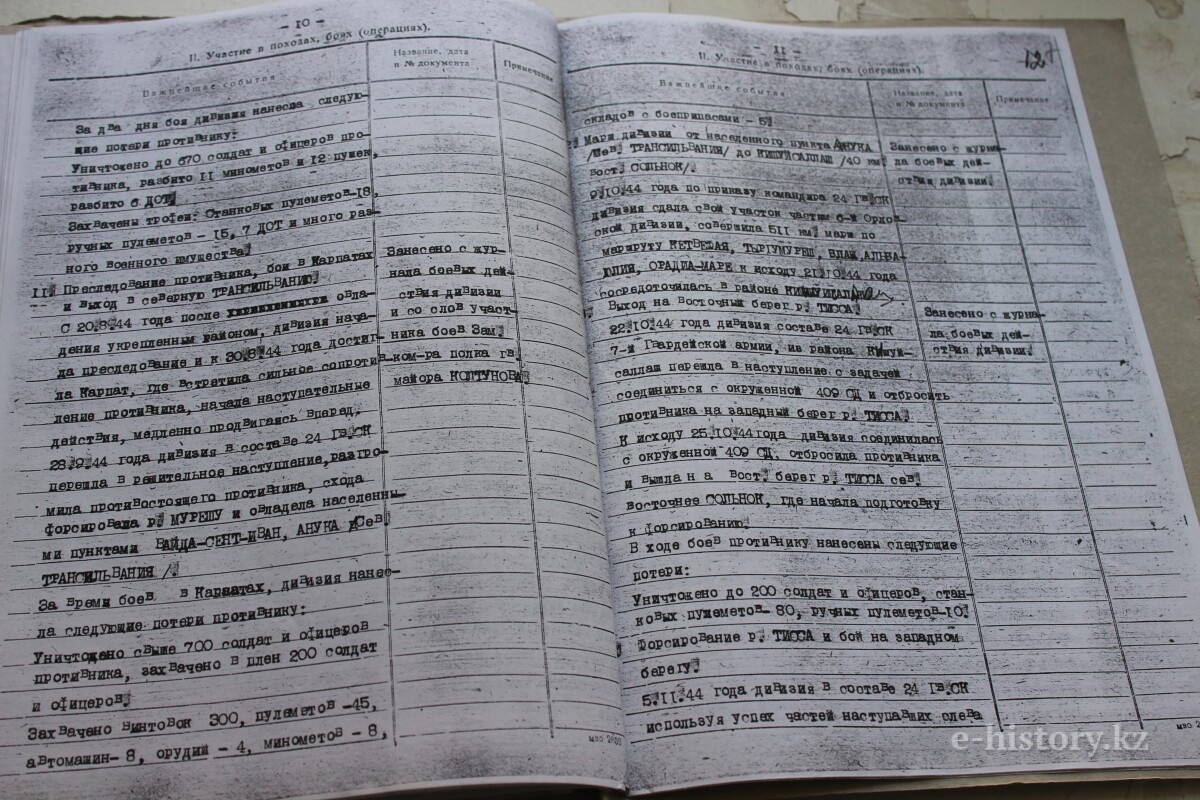 - 10 -
II. Участие в походах, боях (операциях).
Важнейшие события
Название, дата и № документа
Примечание
За два дня боя дивизия нанесла следую-
щие потери противнику:
Уничтожено до 670 солдат и офицеров про-
тивника, разбито 11 минометов и 12 пушек,
разбито 6 ДОТ.
Захвачены трофеи: Станковых пулеметов-18,
ручных пулеметов - 15, 7 ДОТ и много раз-
ного военного имущества.
II. Преследование противника, бои в Карпатах
и выход в северную ТРАНСИЛЬВАНИЮ.
С 20.8.44 года после овла-
дения укрепленным районом, дивизия нача-
да преследование и к 30.8.44 года достиг-
ла Карпат, где встретила сильное сопротив-
ление противника, начала наступательные
действия, медленно продвигаясь вперед.
28.9.44 года дивизия в составе 24 Гв.СК
перешла в решительное наступление,разгро-
мила противостоящего противника, схода
форсировала р. МУРЕШУ и овладела населенны-
ми пунктами ВАЙДА-СЕНТ-ИВАН, АНУКА /Сев.
ТРАНСИЛЬВАНИЯ /.
За время боев в Карпатах, дивизия нанес-
ла следующие потери противнику:
Уничтожено свыше 700 солдат и офицеров
противника, захвачено в плен 200 солдат
и офицеров.
Захвачено винтовок 300, пулеметов -45,
автомашин- 8, орудий - 4, минометов - 8,
Занесено с жур-
нала боевых дей-
ствия дивизии
и со слов участ-
ника боев Зам.
ком-ра полка гв.
майора КОЛТУНОВА.
- 11 -
II. Участие в походах, боях (операциях).
Важнейшие события
Название, дата и № документа
Примечание
складов с боеприпасами - 5.
Марш дивизии от населенного пункта АНУКА
/Сев. ТРАНСИЛЬВАНИЯ/ до КИШУЙСАЛЛАШ /40 км.
Вост. СОЛЬНОК/.
9.10.44 года по приказу командира 24 Гв.СК
дивизия сдала свой участок частям 6-й Орлов-
ской дивизии, совершила 511 км. марш по
маршруту КЕТВЕДАЯ, ТЫРГУМУРЕШ, БЛАЖ,АЛЬБА-
ЮЛИИ, ОРАДИА-МАРЕ к исходу 21.10.44 года
сосредоточилась в районе
Выход на Восточный берег р. ТИССА.
22.10.44 года дивизия составе 24 Гв.СК
7-й Гвардейской армии, из района Кишуй-
саллаш перешла в наступление с задачей
соединиться с окруженной 409 СД и отбросить
противника на западный берег р. ТИССА.
К исходу 25.10.44года дивизия соединилась
с окруженной 409 СД, отбросила противника
и вышла н а Вост. берег р. ТИССА сев.
восточнее СОЛЬНОК, где начала подготовку
к форсированию.
В ходе боев противнику нанесены следующие
потери:
Уничтожено до 200 солдат и офицеров, стан-
ковых пулеметов- 80, ручных пулеметов-10.
Форсирование р. ТИССА и бой на западном
берегу.
5.11.44 года дивизия в составе 24 Гв.СК
используя успех частей наступавших слева
Занесено с журна-
ла боевых дей-
ствия дивизии.
Занесено с журна-
ла боевых дей-
ствия дивизии.
e-history.kz